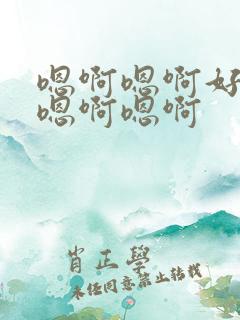 嗯啊嗯啊好
嗯啊嗯啊
肖正學
未经同意禁止转载